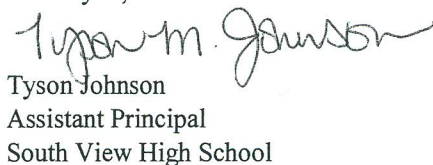 Tyson M. Johnson
Tyson Johnson
Assistant Principal
South View High School